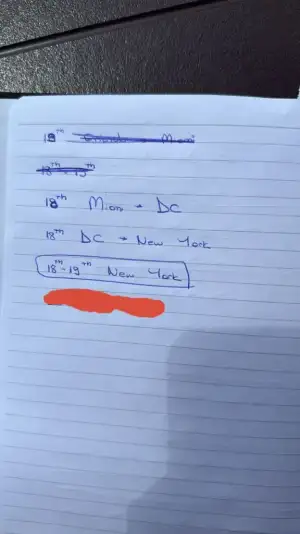 19th Orlando - Miami
18th - 19th
18th Miami → DC
18th DC → New York
18th - 19th New York